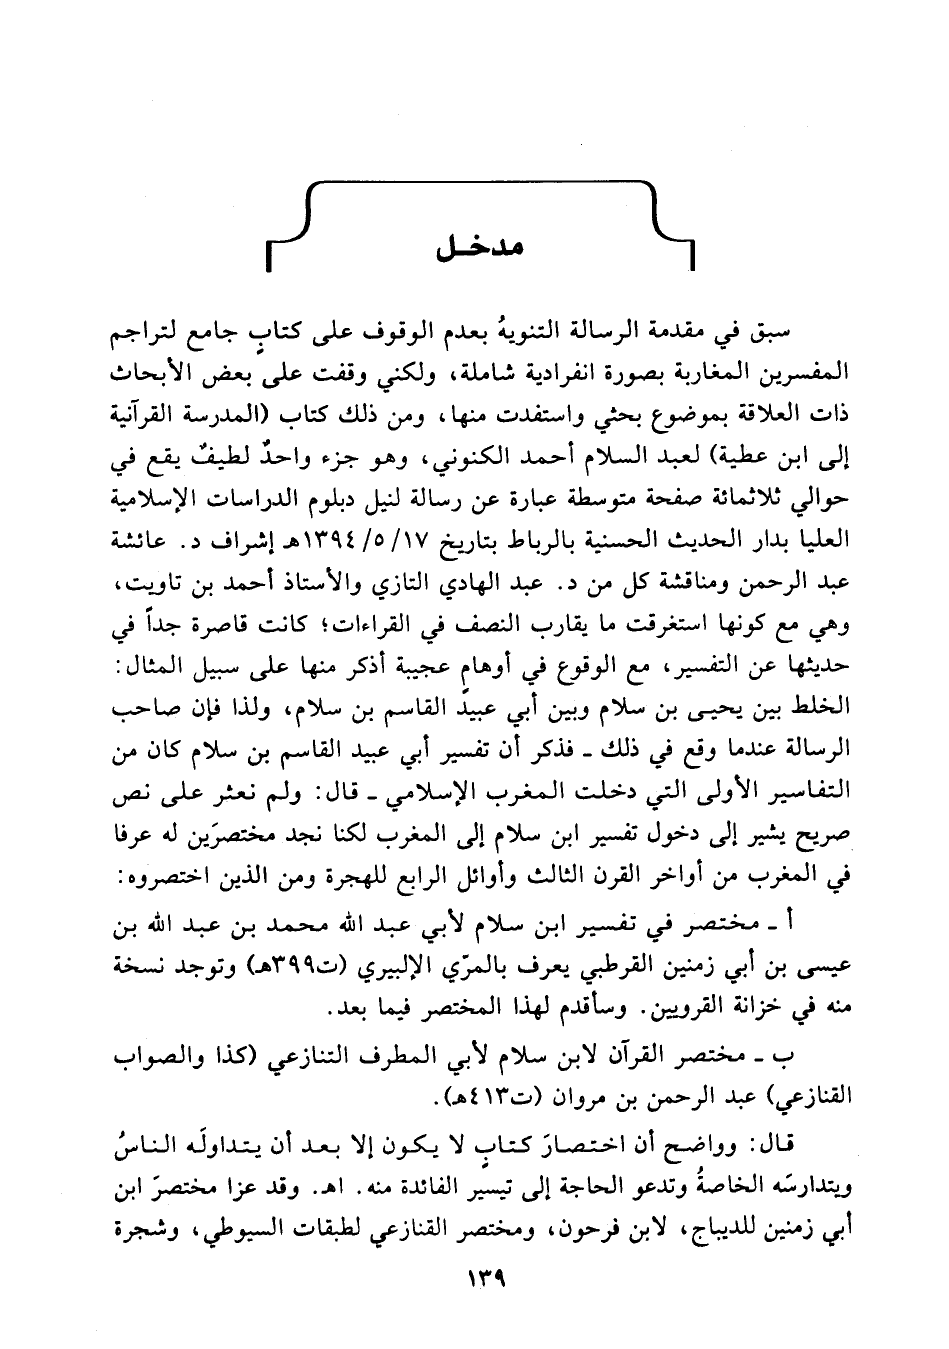 مدخـل
سبق في مقدمة الرسالة التنويهُ بعدم الوقوف على كتابٍ جامع لتراجم
المفسرين المغاربة بصورة انفرادية شاملة، ولكني وقفت على بعض الأبحاث
ذات العلاقة بموضوع بحثي واستفدت منها، ومن ذلك كتاب (المدرسة القرآنية
إلى ابن عطية) لعبد السلام أحمد الكنوني، وهو جزء واحدٌ لطيفٌ يقع في
حوالي ثلاثمائة صفحة متوسطة عبارة عن رسالة لنيل دبلوم الدراسات الإسلامية
العليا بدار الحديث الحسنية بالرباط بتاريخ ١٣٩٤/٥/١٧هـ إشراف د. عائشة
عبد الرحمن ومناقشة كل من د. عبد الهادي التازي والأستاذ أحمد بن تاويت،
وهي مع كونها استغرقت ما يقارب النصف في القراءات؛ كانت قاصرة جداً في
حديثها عن التفسير، مع الوقوع في أوهامٍ عجيبة أذكر منها على سبيل المثال:
الخلط بين يحيـى بن سلام وبين أبي عبيدٍ القاسم بن سلام، ولذا فإن صاحب
الرسالة عندما وقع في ذلك - فذكر أن تفسير أبي عبيد القاسم بن سلام كان من
التفاسير الأولى التي دخلت المغرب الإسلامي - قال: ولم نعثر على نص
صريح يشير إلى دخول تفسير ابن سلام إلى المغرب لكنا نجد مختصرَين له عرفا
في المغرب من أواخر القرن الثالث وأوائل الرابع للهجرة ومن الذين اختصروه:
أ - مختصر في تفسير ابن سلام لأبي عبد الله محمد بن عبد الله بن
عيسى بن أبي زمنين القرطبي يعرف بالمرّي الإلبيري (ت٣٩٩هـ) وتوجد نسخة
منه في خزانة القرويين. وسأقدم لهذا المختصر فيما بعد.
ب - مختصر القرآن لابن سلام لأبي المطرف التنازعي (كذا والصواب
القنازعي) عبد الرحمن بن مروان (ت٤١٣هـ).
قال: وواضح أن اختصارَ كتابٍ لا يكون إلا بعد أن يتداولَه الناسُ
ويتدارسَه الخاصةُ وتدعو الحاجة إلى تيسير الفائدة منه. اهـ. وقد عزا مختصرَ ابن
أبي زمنين للديباج، لابن فرحون، ومختصر القنازعي لطبقات السيوطي، وشجرة
١٣٩